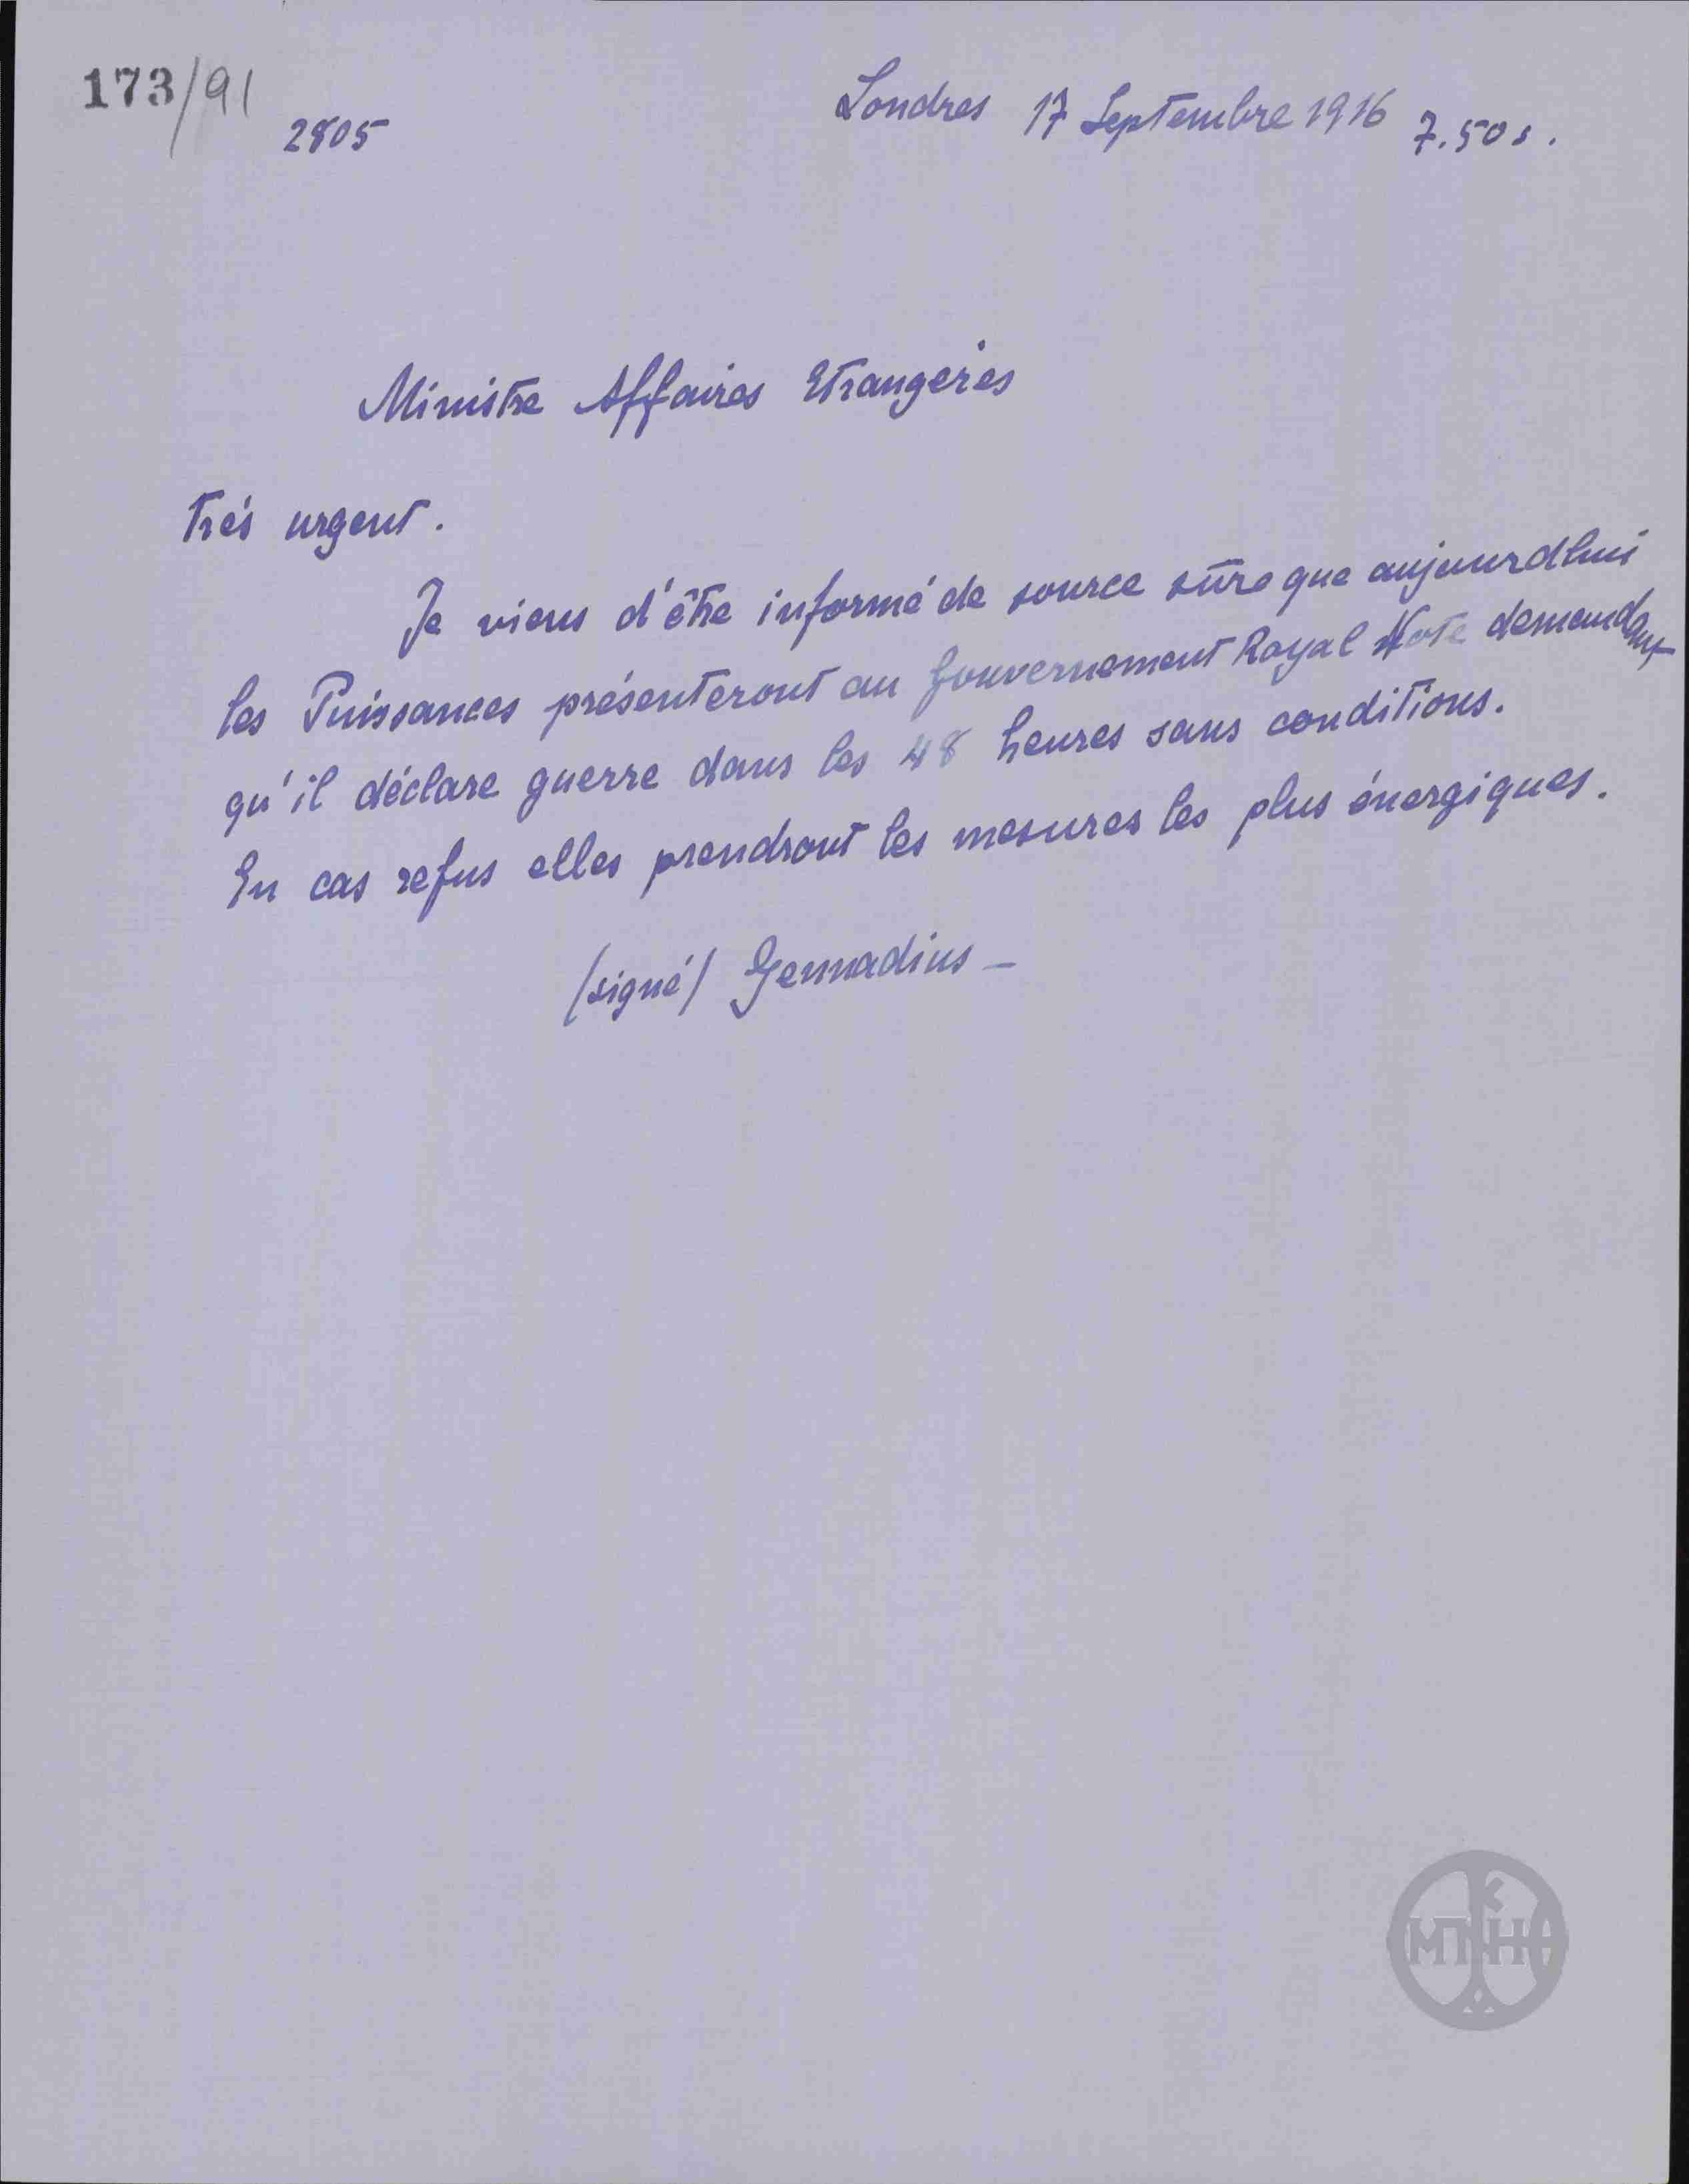 173/91
2805
Londres 17 Septembre 1916 7.50 s.
Ministre Affaires Etrangères
Très urgent.
Je viens d'être informé de source sûre que aujourdhui
les Puissances présenteront au Gouvernement Royal Note demandant
qu'il déclare guerre dans les 48 heures sans conditions.
En cas refus elles prendront les mesures les plus énergiques.
/signé/ Gennadius -